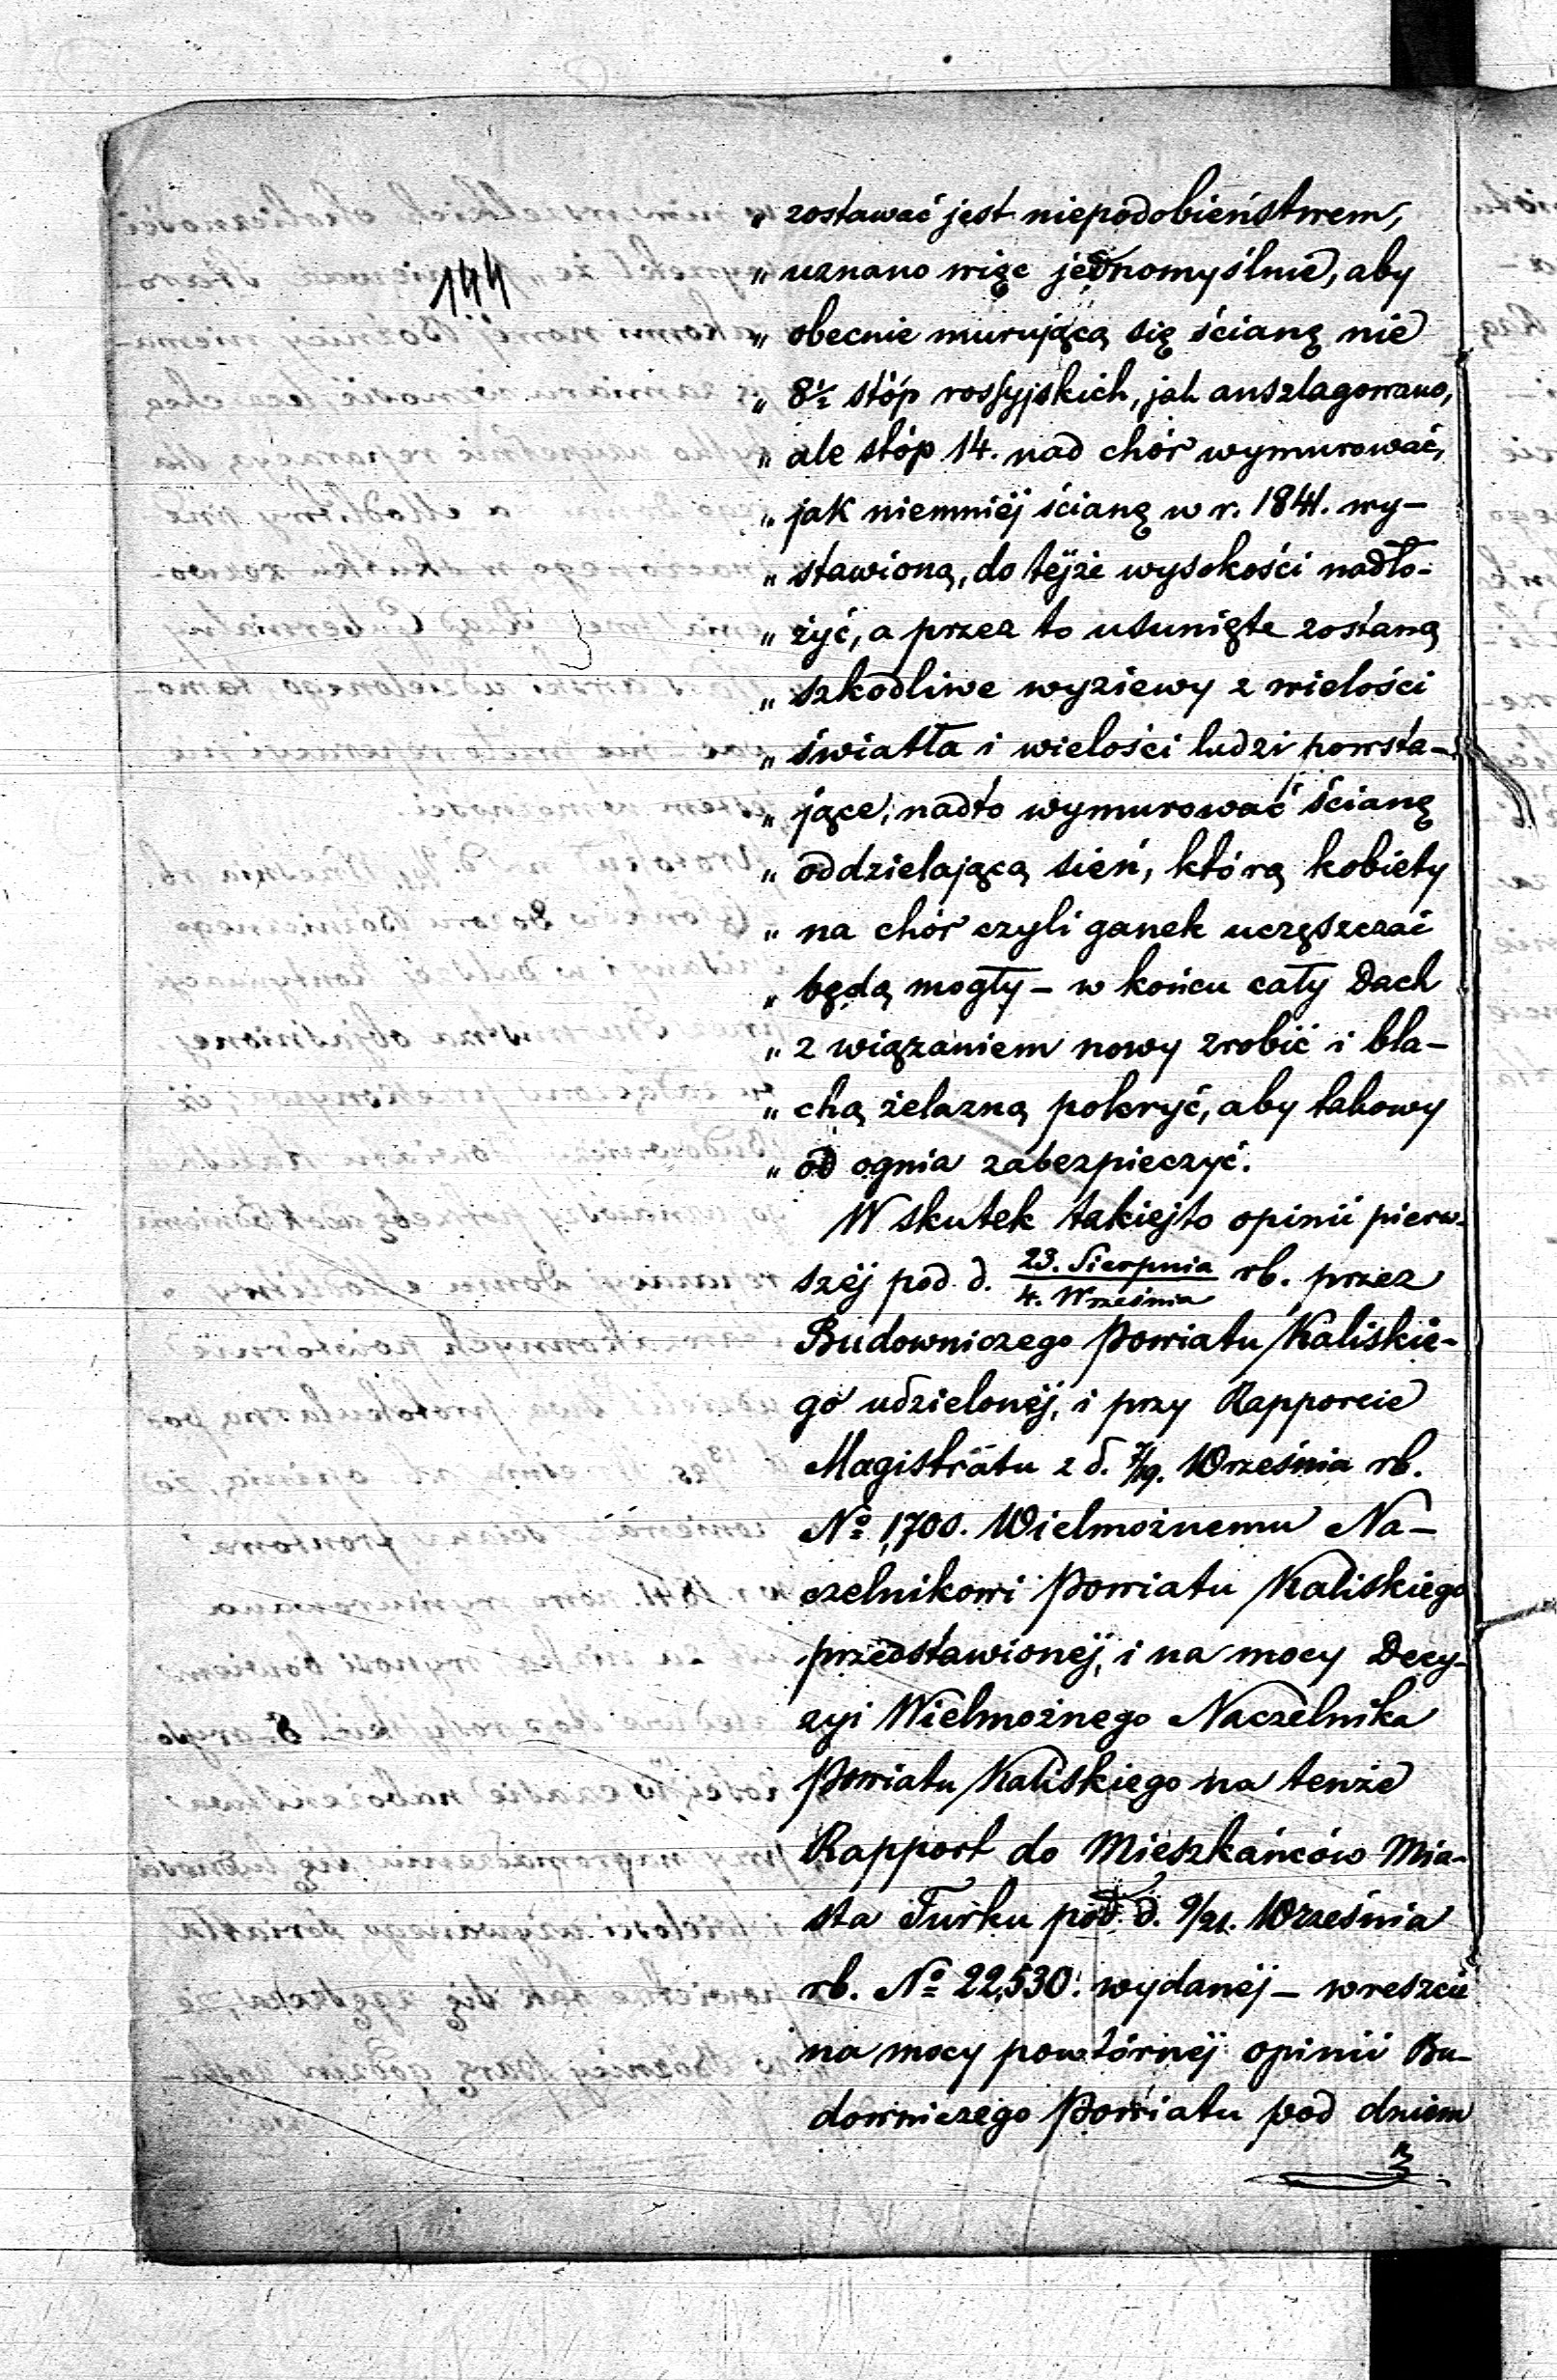 144
„ zostawać jest niepodobieństwem,
„ uznano więc jednomyślnie, aby
„ obecnie murującą się ścianę nie
„ 8½ stóp rossyjskich, jak anszlagowano,
„ ale stóp 14. nad chór wymurować,
„ jak niemniéj ścianę w r. 1841. wy-
„ stawioną, do téjże wysokości nadło-
„ żyć, a przez to usunięte zostaną
„ szkodliwe wyziewy z wielości
„ światła i wielości ludzi powsta-
„ jące, nadto wymurować ścianę
„ oddzielającą sień, którą kobiety
„ na chór czyli ganek uczęszczać
„ będą mogły – w końcu cały Dach
„ z wiązaniem nowy zrobić i bla-
„ chą żelazną pokryć, aby takowy
„ od ognia zabezpieczyć.
W skutek takiejto opinii pierw-
széj pod d. 23. Sierpnia/4. Września rb. przez
Budowniczego Powiatu Kaliskie-
go udzielonéj, i przy Rapporcie
Magistratu z d. 7/19. Września rb.
No 1,700. Wielmożnemu Na-
czelnikowi Powiatu Kaliskiego
przedstawionéj, i na mocy Decy-
zyi Wielmożnego Naczelnika
Powiatu Kaliskiego na tenże
Rapport do Mieszkańców Mia-
sta Turku pod d. 9/21. Września
rb. No 22,530. wydanéj – wreszcie
na mocy powtórnéj opinii Bu-
downiczego Powiatu pod dniem